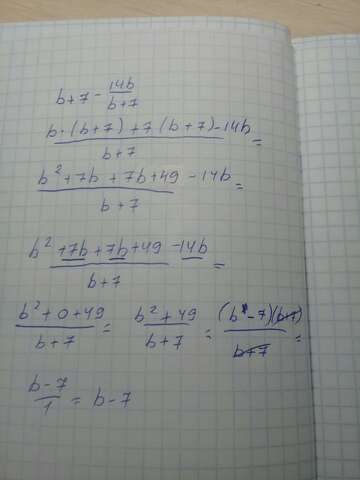 b+7 - 14b/(b+7)
(b·(b+7)+7(b+7)-14b)/(b+7) =
(b²+7b+7b+49-14b)/(b+7) =
(b²+7b+7b+49-14b)/(b+7) =
(b²+0+49)/(b+7) = (b²+49)/(b+7) = ((b-7)(b+7))/(b+7) =
(b-7)/1 = b-7